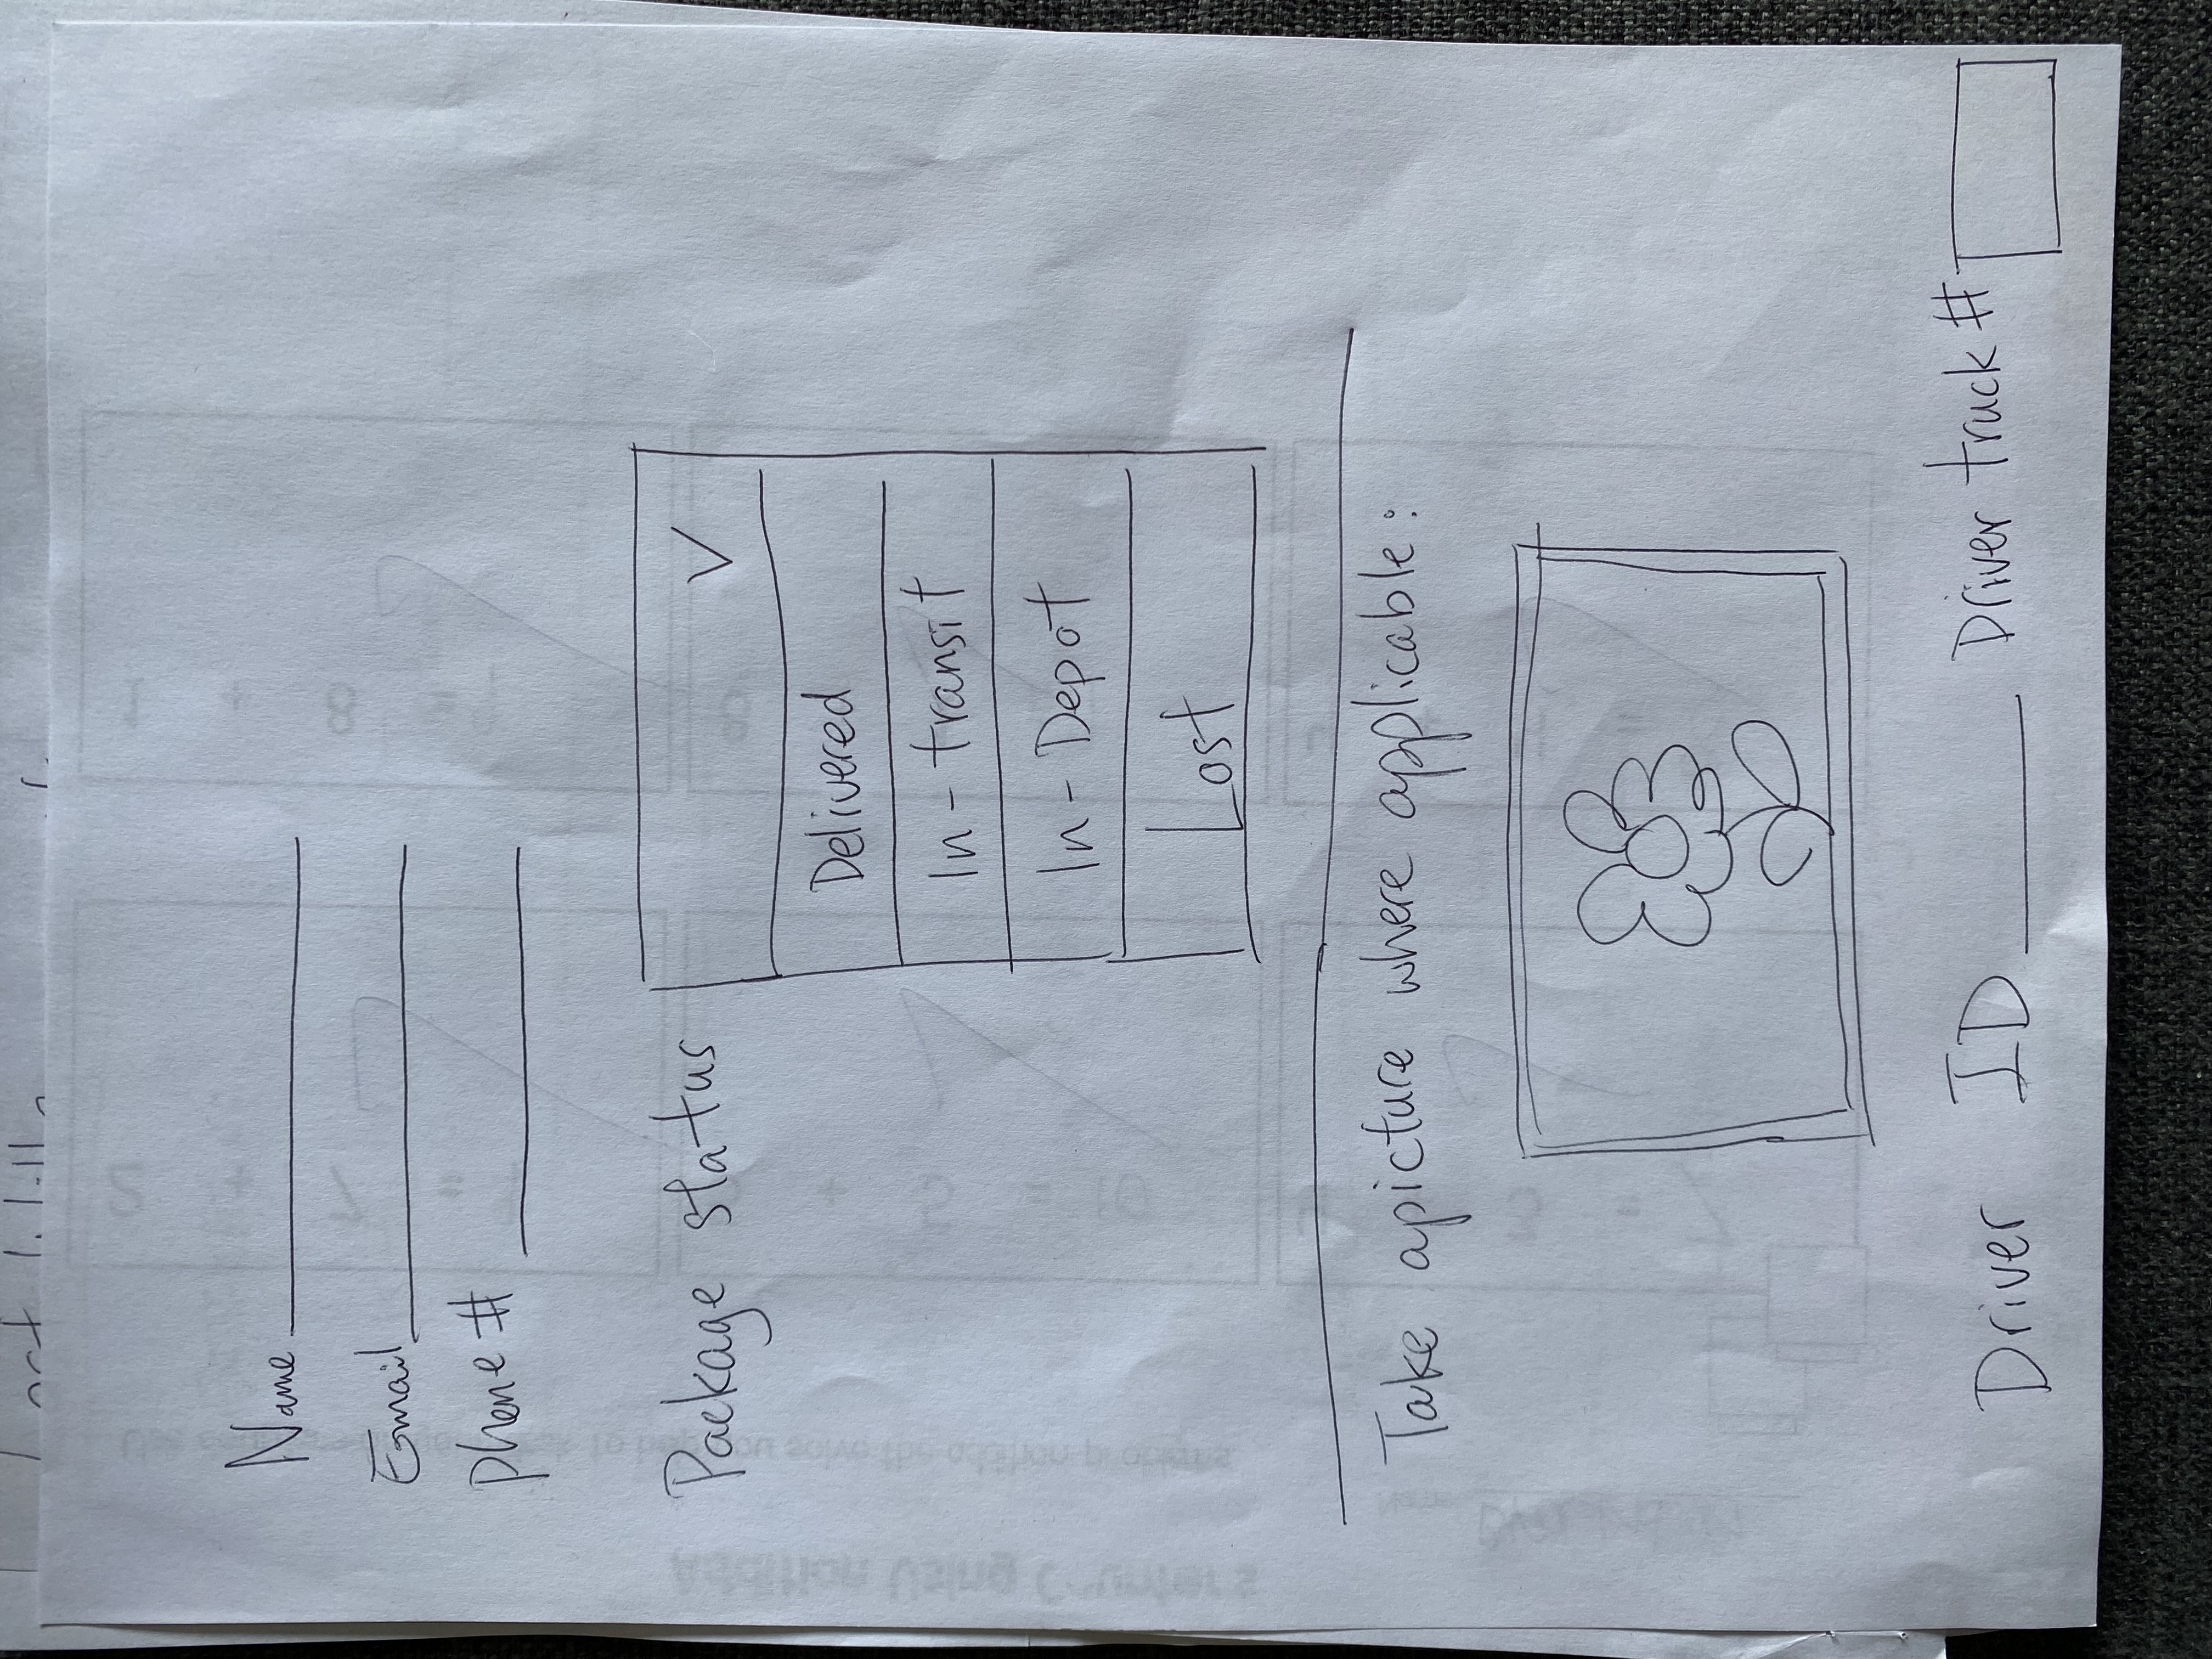 Name
Email
Phone #
Package status
Delivered
In-transit
In-Depot
Lost
Take a picture where applicable:
Driver ID Driver truck #